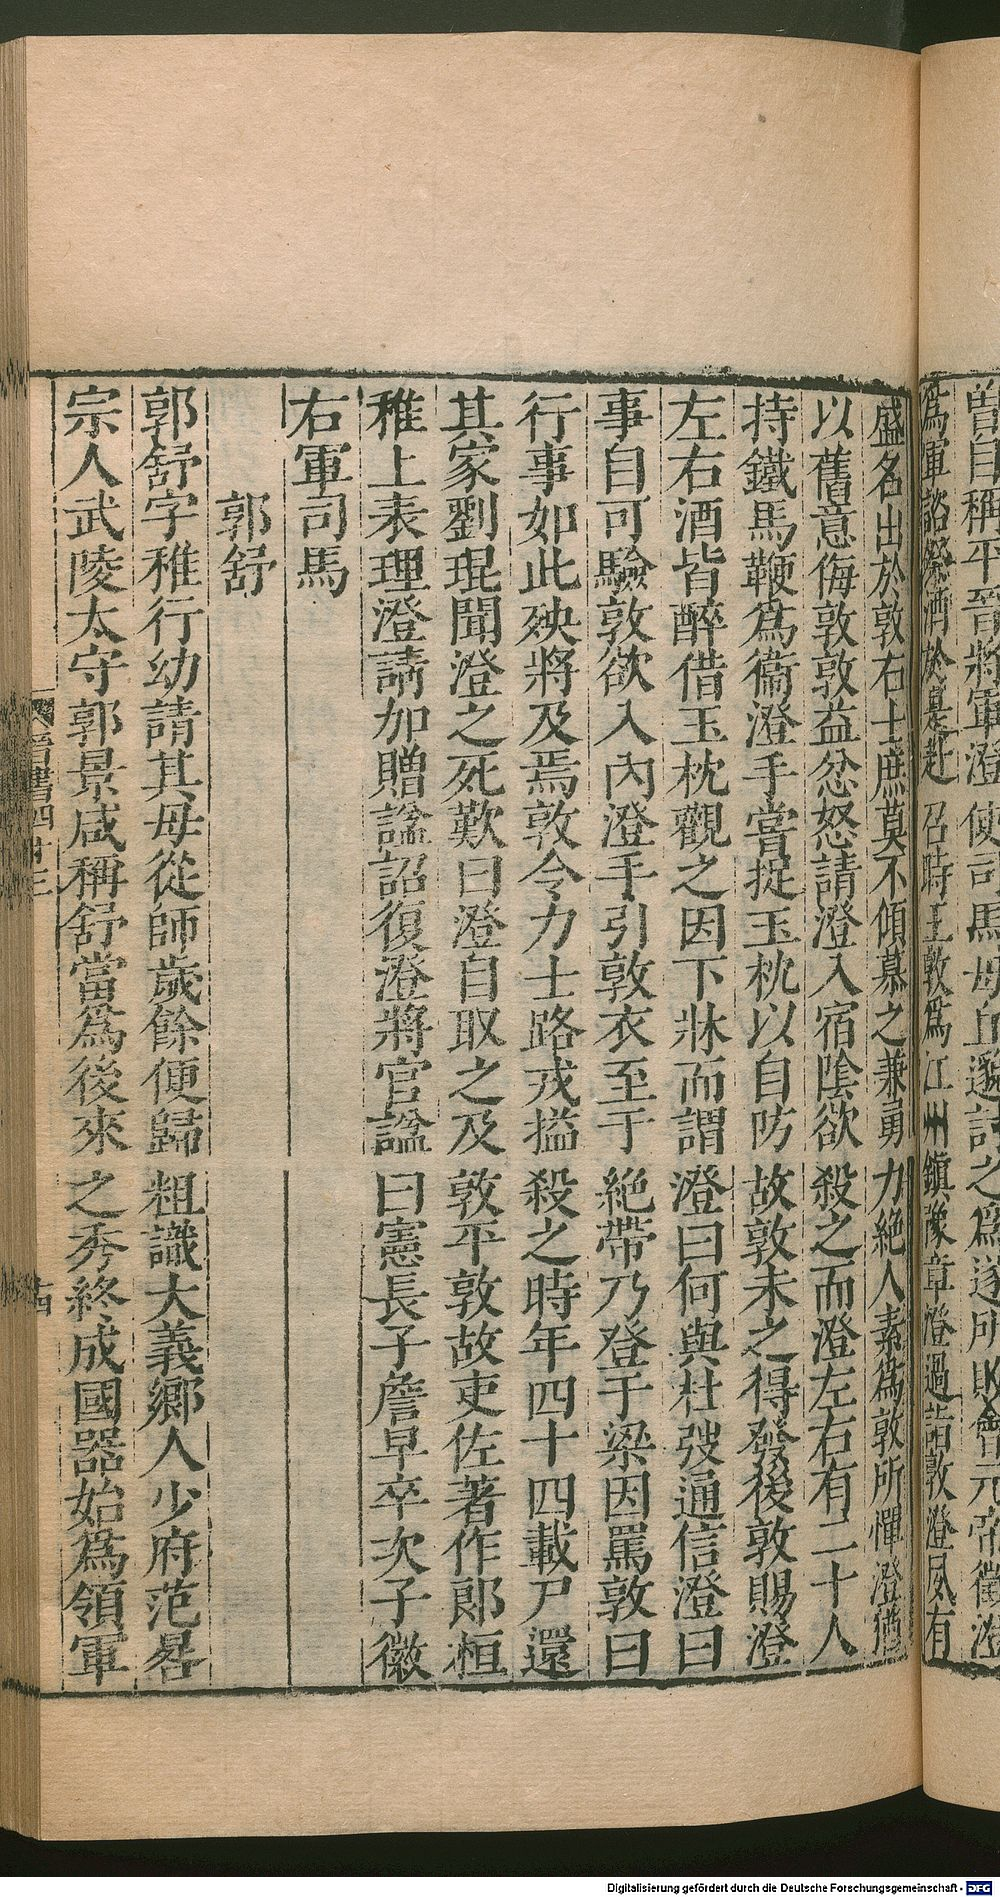 曾自稱平晉將軍澄使司馬毋丘邈討之爲遂所敗會元帝徵澄
爲軍諮祭酒於是赴召時王敦爲江州鎮豫章澄過詣敦澄夙有
盛名出於敦右士庶莫不傾慕之兼勇力絶人素爲敦所憚澄猶
以舊意侮敦敦益忿怒請澄入宿陰欲殺之而澄左右有二十人
持鐵馬鞭爲衞澄手嘗捉玉枕以自防故敦未之得發後敦賜澄
左右酒皆醉借玉枕觀之因下牀而謂澄曰何與杜弢通信澄曰
事自可驗敦欲入內澄手引敦衣至于絶帶乃登于梁因罵敦曰
行事如此殃將及焉敦令力士路戎搤殺之時年四十四載尸還
其家劉琨聞澄之死歎曰澄自取之及敦平敦故吏佐著作郎桓
稚上表理澄請加贈諡詔復澄將官諡曰憲長子詹早卒次子徽
右軍司馬
郭舒
郭舒字稚行幼請其母從師歲餘便歸粗識大義鄉人少府范晷
宗人武陵太守郭景咸稱舒當爲後來之秀終成國器始爲領軍
晉書四十三
十四
Digitalisierung gefördert durch die Deutsche Forschungsgemeinschaft - DFG